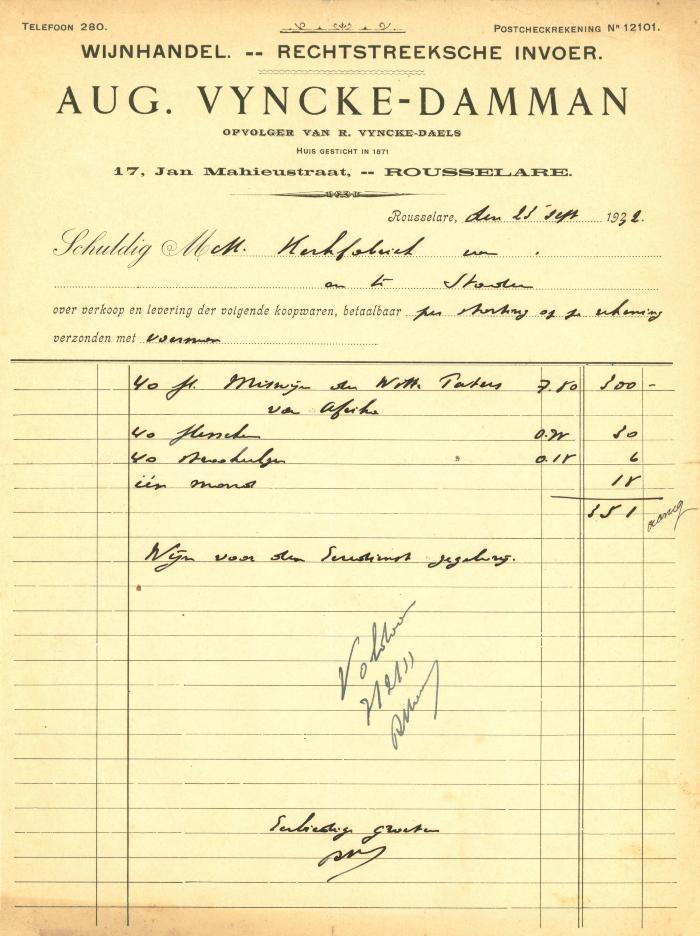 TELEFOON 280.
POSTCHECKREKENING Nʳ 12101.
WIJNHANDEL. -- RECHTSTREEKSCHE INVOER.
AUG. VYNCKE-DAMMAN
OPVOLGER VAN R. VYNCKE-DAELS
HUIS GESTICHT IN 1871
17, Jan Mahieustraat, -- ROUSSELARE.
Rousselare, den 25 sept 1932.
Schuldig M M. Kerkfabriek van
te Staden
over verkoop en levering der volgende koopwaren, betaalbaar per storting op rekening
verzonden met voerman
40 fl. Miswijn der Witte Paters 7.50 300 -
van Afrika
40 flesschen 30
40 stroohulzen 0.15 6
één mand 15
351
Wijn voor den Eeredienst
Voldaan
Eerbiedige groeten